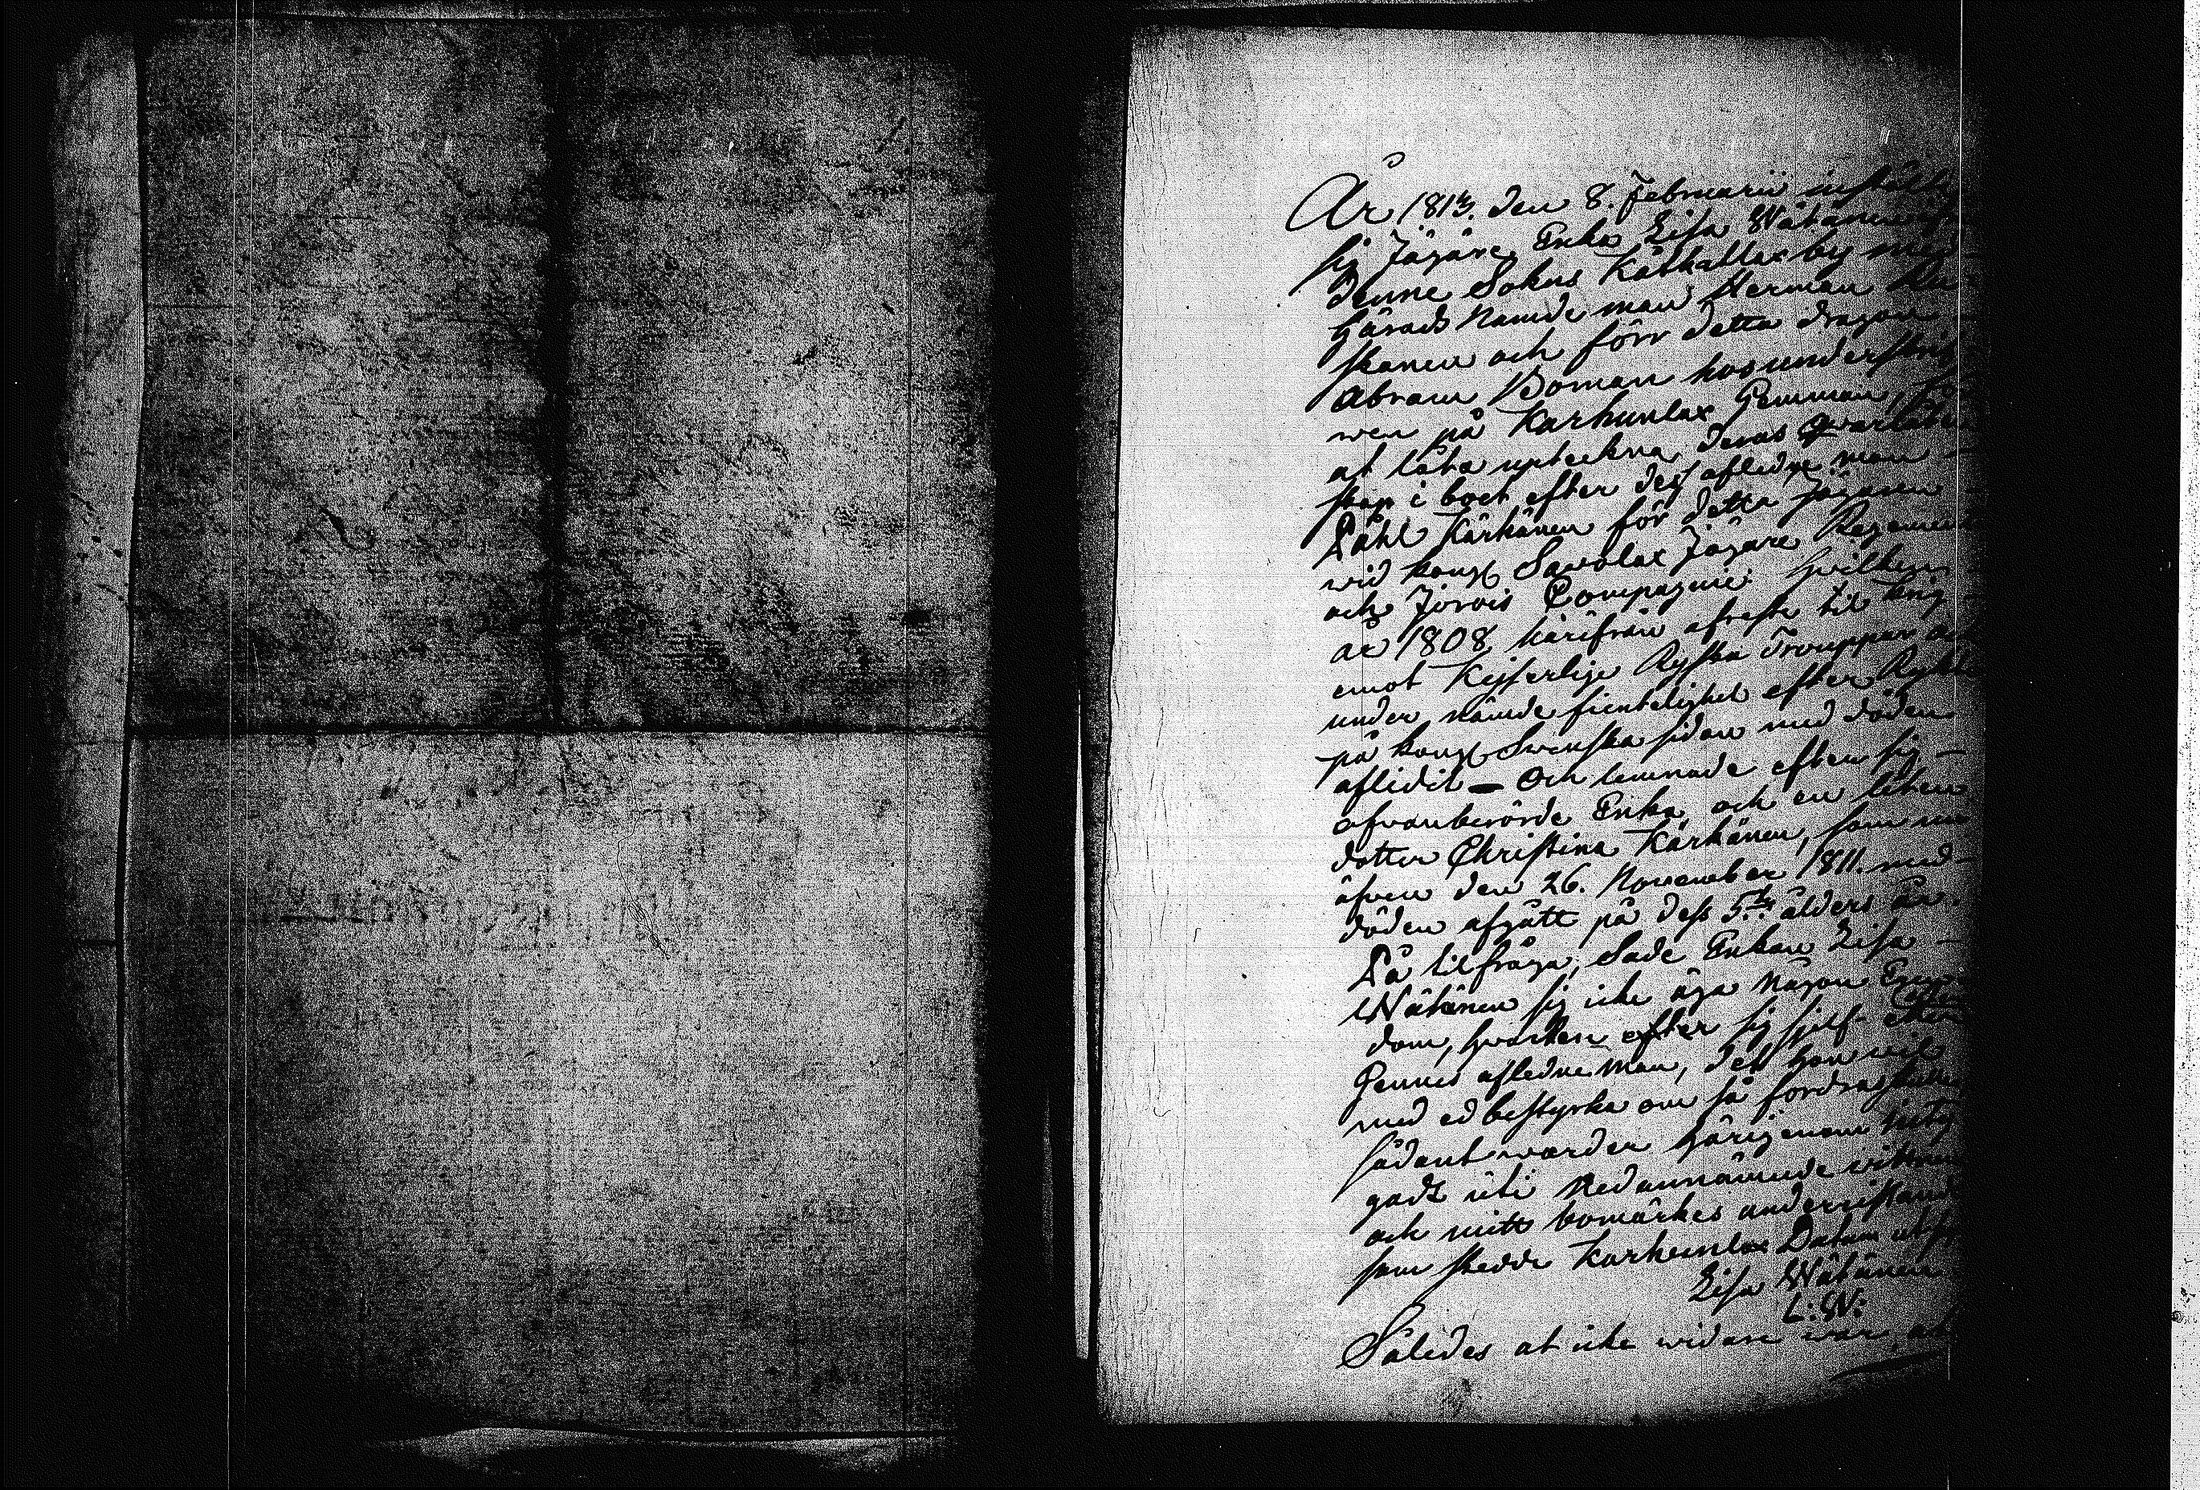 År 1813. den 8. Februarii instälte
sig Jägare Enka Lisa Wätänen
denne Sokns Kätkallax by med
Härads Namde man Herman
skanen och förr detta dragon
Abram Boman hos underskrif
wen på Karhunlax Hemman,
at låta upteckna deras Qvarlåten
skap i boet efter dess afledne man
Påhl Kärkänen för detta Jägaren
wid kongl Savolax Jägare Regemente
och Jorois Compagnie hvilken
år 1808 härifrån afreste til krig
emot Kejserlige Ryska Trouppar och
under nämde fientelighet efter Rykte
på kongl Swenska sidan med döden
aflidit – Och lemnade efter sig –
ofvanberörde Enka, och en liten
dotter Christina Kärkänen, som nu
äfven den 26. November 1811. med
döden afgått på dess 5:te ålders år.
På tilfråga, Sade Enkan Lisa –
Wätänen sig icke äga någon Egen
dom, hvarken efter sig sjelf eller
Hennes afledne man, det hon vil
med ed bestyrka om så fordras
sådant warder härigenom
gadt uti Nedannämnde vittnen
och mitt bomärkes underristande
som skedde Karhunlax Datum utsu
Lisa Wätänen
L: W:
Således at icke widare war at